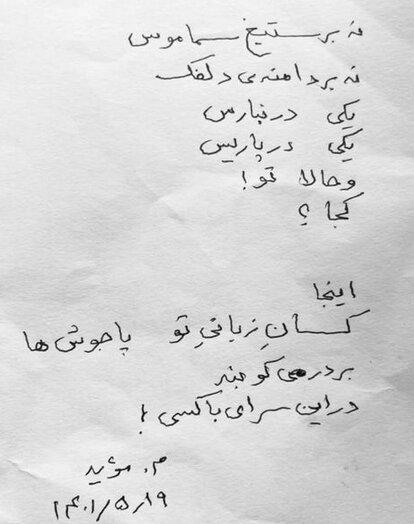 نه بر ستیغ سماموس
نه بر دامنه‌ی دلفک
یکی در نبارس
یکی در پاریس
و حالا تو!
کجا؟
اینجا
کسانِ زبانیِ تو پاجوش ها
بر در می کوبند
در این سرای باکسی!
م. مؤید
۱۴۰۱/۵/۱۹